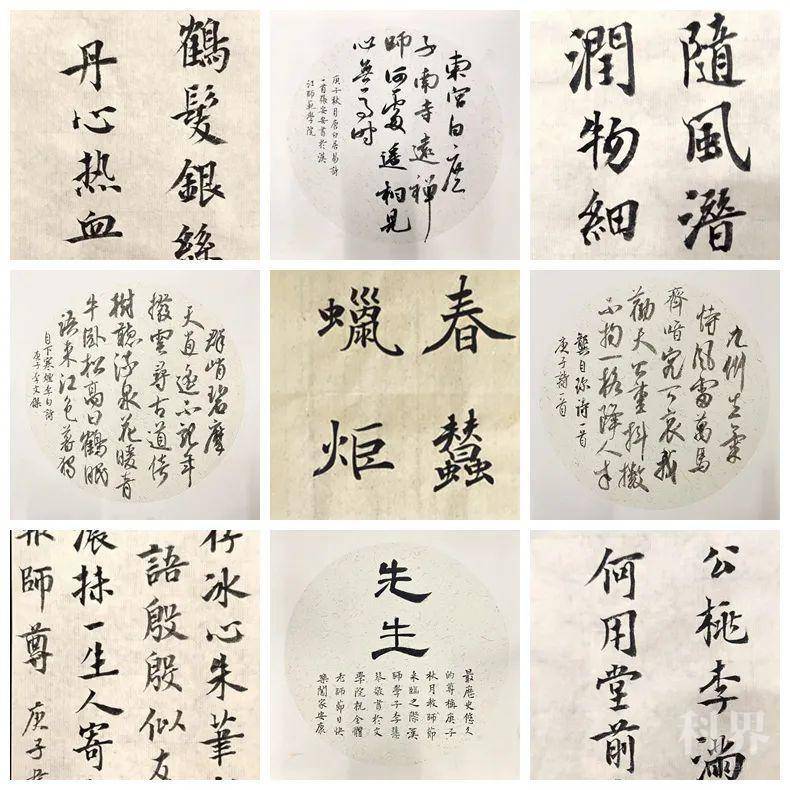 鶴髮銀絲
丹心热血
東宮白庶
子南寺遠禪
師何處遙相見
心無一事時
庚子秋月唐白居易詩
一首張安安書於漢
江師範學院
隨風潛
潤物細
群峭碧摩
天逍遙不記年
撥雲尋古道倚
樹聽流泉花暖青
牛卧松高白鶴眠
語來江色暮獨
自下寒煙李白詩
庚子李文傑
春蠶
蠟炬
九州生氣
恃風雷萬馬
齊喑究可哀我
勸天公重抖擻
不拘一格降人才
龔自珍詩一首
庚子
冰心朱筆
語殷殷似友
抹一生人寄
師尊 庚子
先生
最歷史悠久
的尊稱庚子
秋月教師節
來臨之際漢
師學子李慧
琴敬書於文
學院祝全體
老師節日快
樂闔家安康
公桃李滿
何用堂前
科界